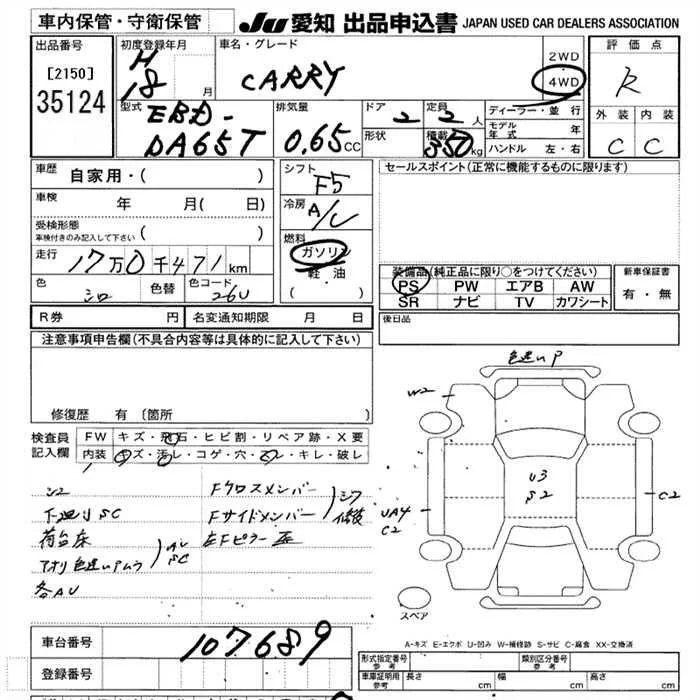 車内保管・守衛保管
JU 愛知 出品申込書 JAPAN USED CAR DEALERS ASSOCIATION
出品番号
[2150]
35124
初度登録年月
H
18 月
車名・グレード
CARRY
2WD
4WD
評価点
R
外装 内装
C C
型式
EBD-
DA65T
排気量
0.65 CC
ドア 2
形状
定員 2 人
積載 350 kg
ディーラー・並行
モデル年式 年
ハンドル 左・右
車歴
自家用・( )
車検 年 月( 日)
受検形態
車検付きのみ記入して下さい ( )
走行 17万0千471km
色 シロ 色替 色コード 26U
シフト
F5
冷房
A/C
燃料
ガソリン
軽油
( )
セールスポイント(正常に機能するものに限ります)
装備品(純正品に限り○をつけてください)
PS PW エアB AW
SR ナビ TV カワシート
新車保証書
有・無
R券 円 名変通知期限 月 日
後日品
注意事項申告欄(不具合内容等は具体的に記入して下さい)
修復歴 有 (箇所 )
検査員
記入欄
FW キズ・飛石・ヒビ割・リペア跡・X要
内装 キズ・汚レ・コゲ・穴・スレ・キレ・破レ
シロ
下廻りSC
荷台床
アオリ色違いPムラ
各AU
Fクロスメンバー
Fサイドメンバー
左Fピラー
色違いP
W2
U3
S2
UA4
C2
C2
スペア
A-キズ E-エクボ U-凹み W-補修跡 S-サビ C-腐食 XX-交換済
車台番号 107689
登録番号
形式指定番号
参考
類別区分番号
参考
車庫証明用
参考
長さ cm 幅 cm 高さ cm